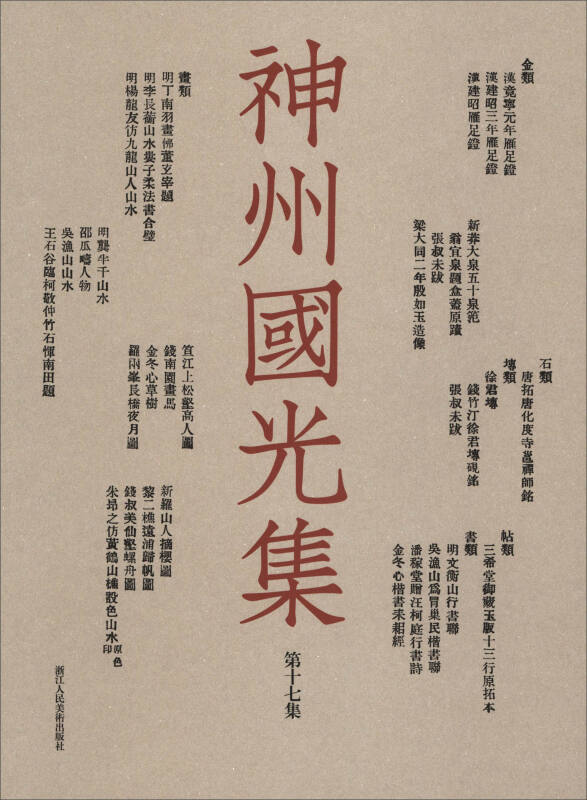 神州國光集
第十七集
金類
漢竟寧元年雁足鐙
漢建昭三年雁足鐙
漢建昭雁足鐙
新莽大泉五十泉笵
翁宜泉題盒蓋原蹟
張叔未跋
梁大同二年殷如玉造像
石類
唐拓唐化度寺邕禪師銘
塼類
徐君塼
錢竹汀徐君塼硯銘
張叔未跋
帖類
三希堂御藏玉版十三行原拓本
書類
明文衡山行書聯
吳漁山為冒巢民楷書聯
潘稼堂贈汪柯庭行書詩
金冬心楷書耒耜經
畫類
明丁南羽畫佛董玄宰題
明李長蘅山水婁子柔法書合璧
明楊龍友仿九龍山人山水
明龔半千山水
邵瓜疇人物
吳漁山山水
王石谷臨柯敬仲竹石惲南田題
笪江上松壑高人圖
錢南園畫馬
金冬心草樹
羅兩峯長橋夜月圖
新羅山人摘櫻圖
黎二樵遠浦歸帆圖
錢叔美仙壑螺舟圖
朱昂之仿黃鶴山樵設色山水原色印
浙江人民美術出版社